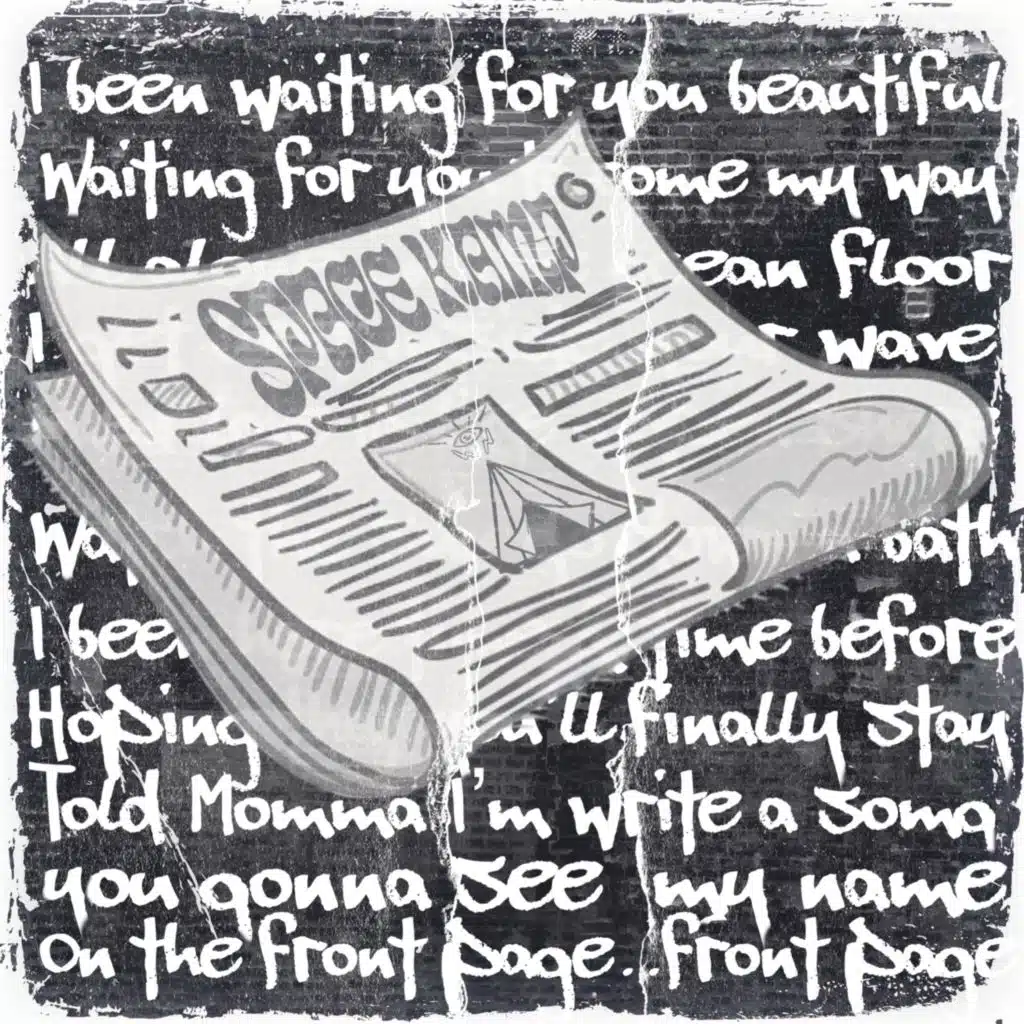 I been waiting for you beautiful
Waiting for you come my way
SPACE KAMP
floor
wave
I been before
Hoping finally stay
Told Momma I'm write a song
you gonna see my name
on the front page...front page